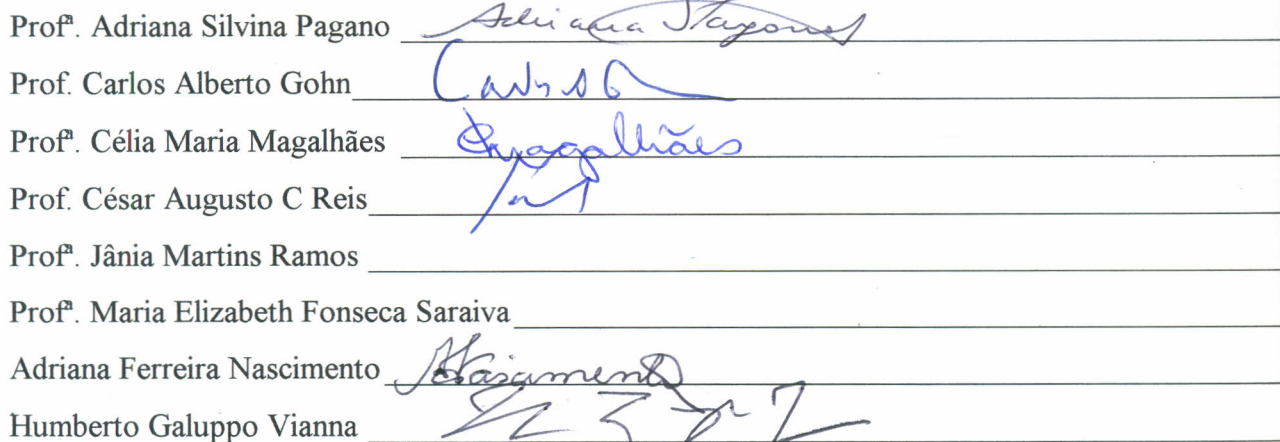 Profª. Adriana Silvina Pagano Adriana S Pagano
Prof. Carlos Alberto Gohn
Profª. Célia Maria Magalhães CMagalhães
Prof. César Augusto C Reis
Profª. Jânia Martins Ramos
Profª. Maria Elizabeth Fonseca Saraiva
Adriana Ferreira Nascimento ANascimento
Humberto Galuppo Vianna